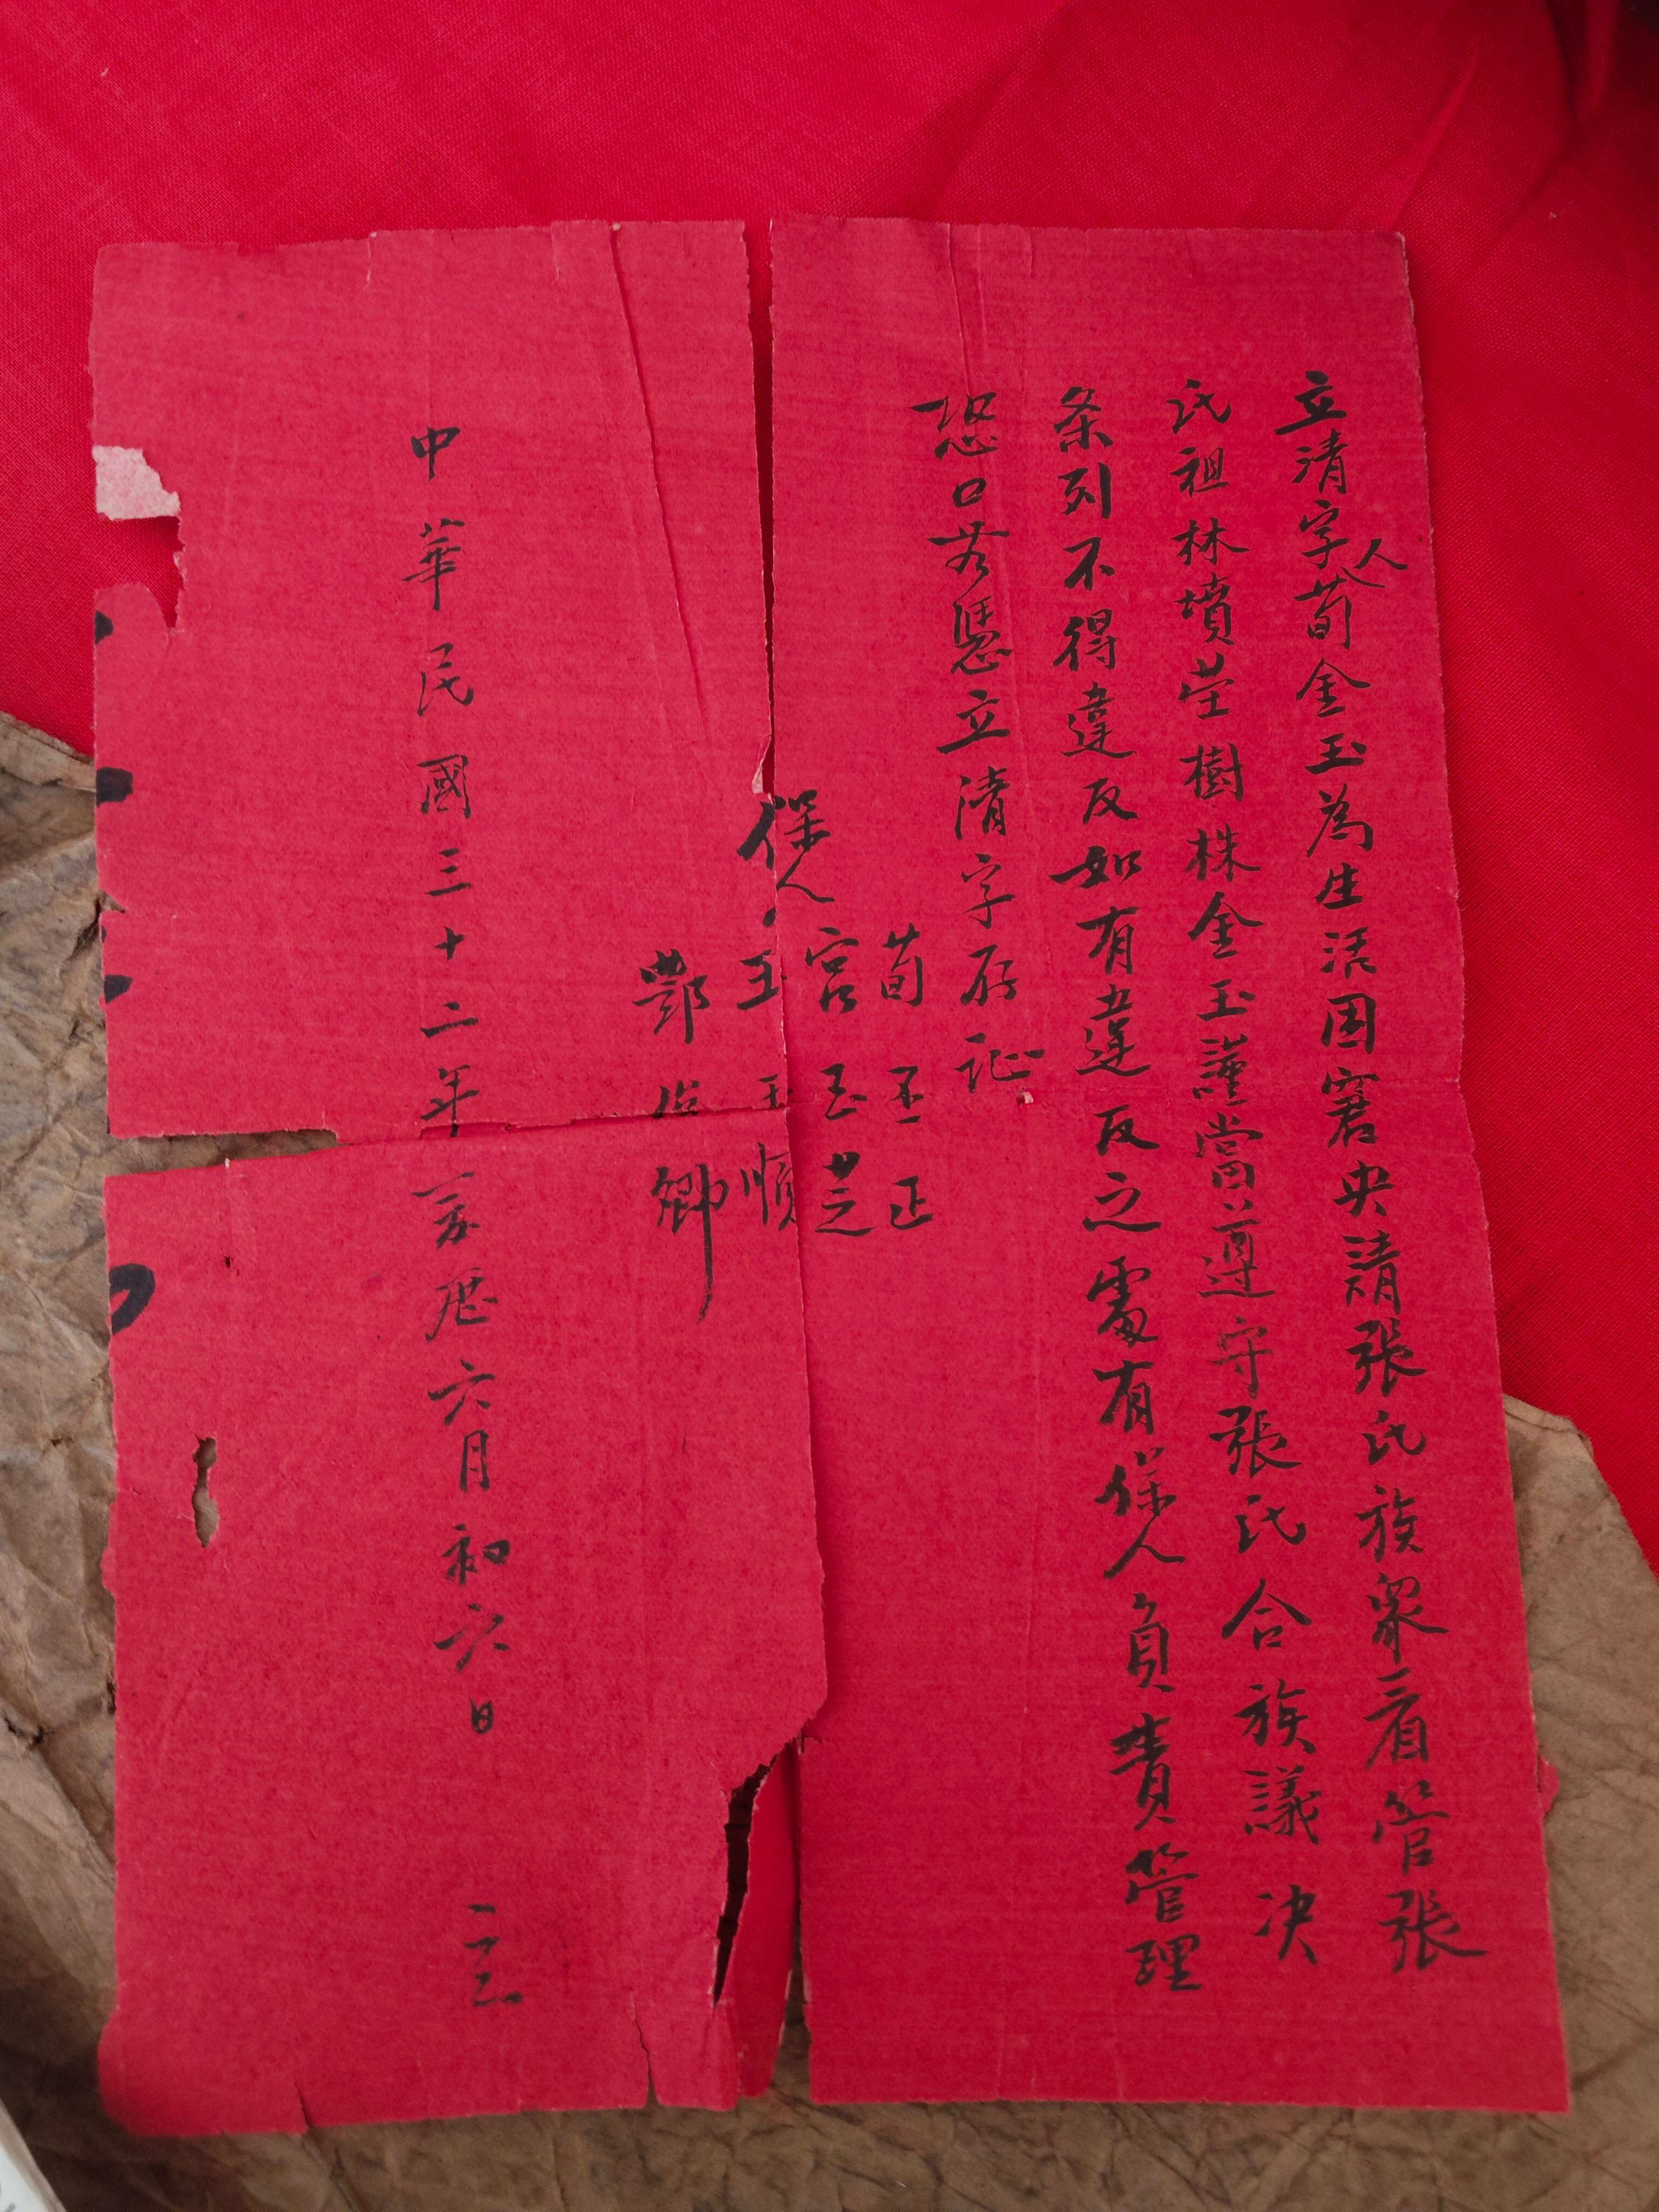 立清字人荀金玉為生活困窘央請張氏族衆看管張
氏祖林墳塋樹株金玉謹當遵守張氏合族議决
条列不得違反如有違反之處有保人負責管理
恐口無憑立清字存证
保人
荀丕正
宮玉芝
王玉順
鄷 卿
中華民國三十二年 厯六月初六日 立